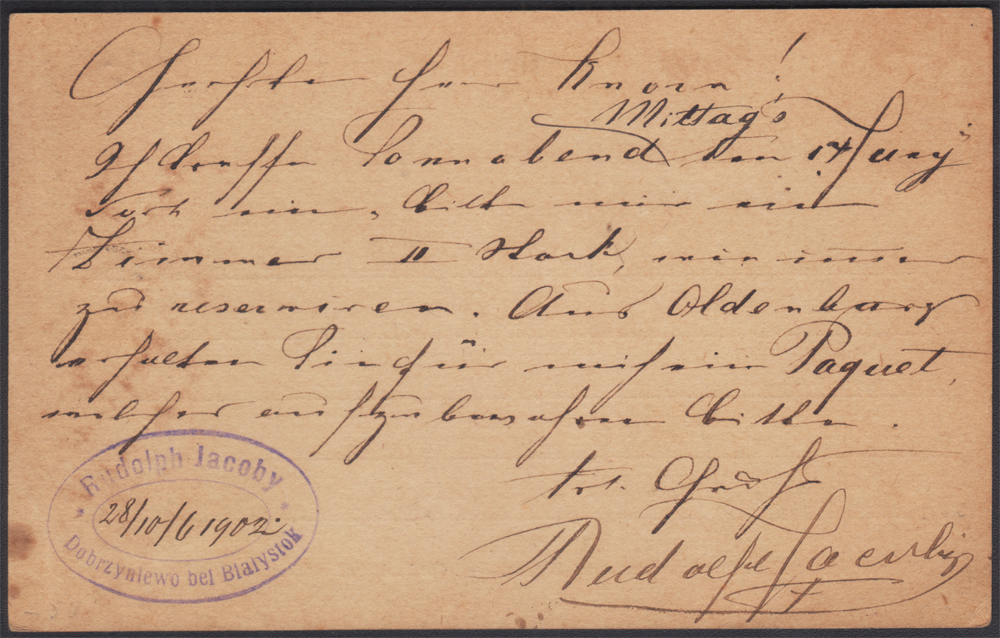 Geehrter Herr Knorn!
Mittags
Ich treffe Sonnabend den 14 Juny
dort ein, bitte mir ein
Zimmer II Stock, wie immer
zu reserviren. Aus Oldenburg
erhalten Sie für mich ein Paquet,
welches aufzubewahren bitte.
Gruß
Rudolph Jacoby
Rudolph Jacoby
28/10/6 1902
Dobrzyniewo bei Bialystok